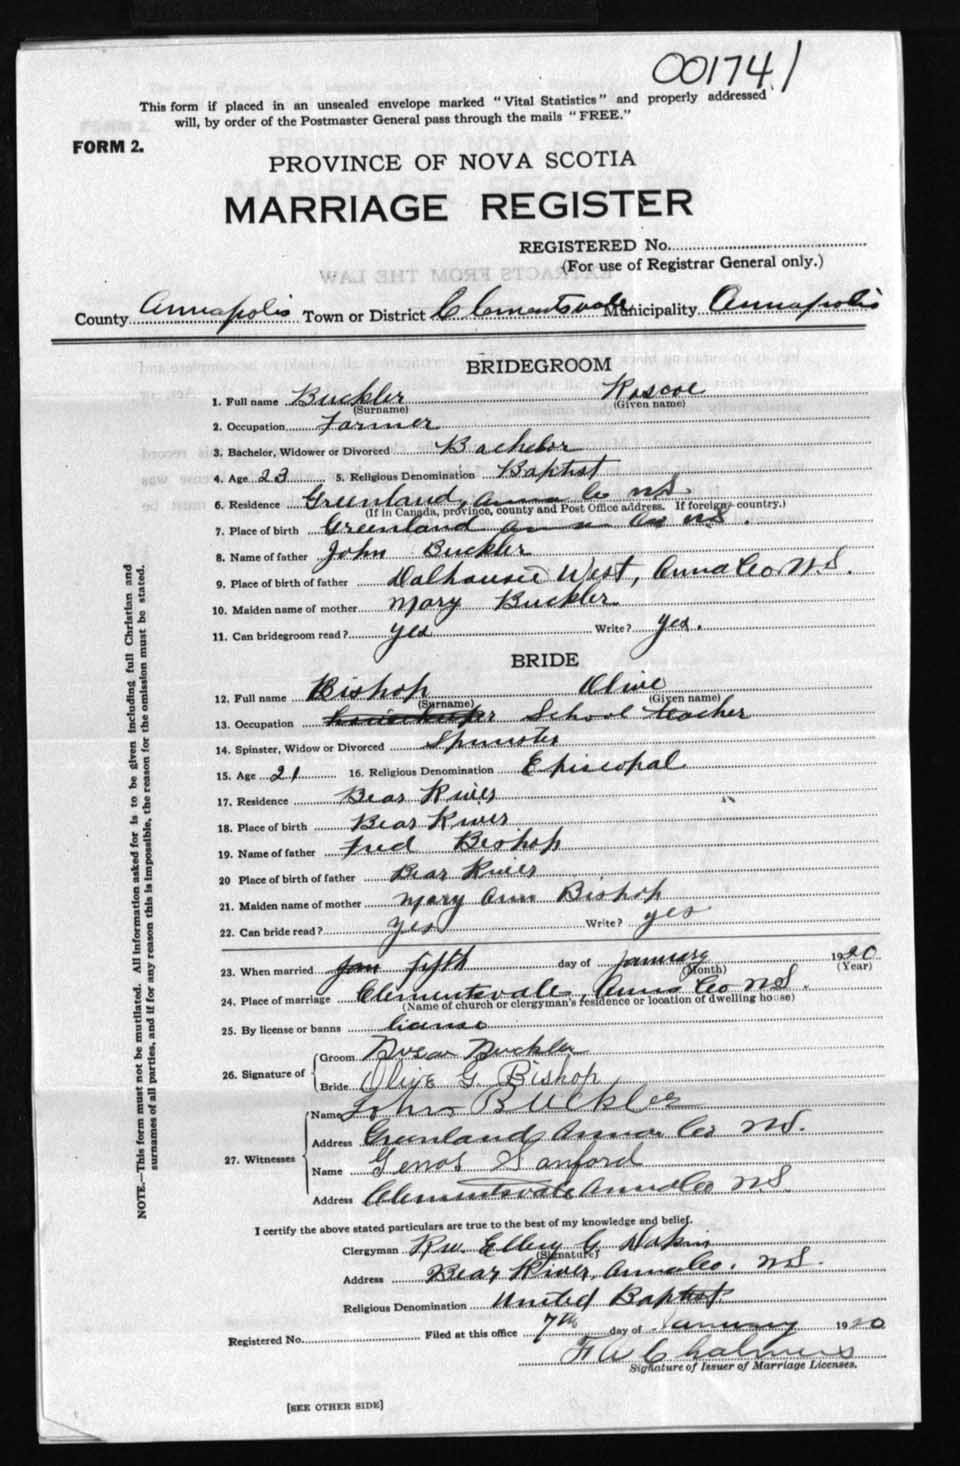 001741
This form if placed in an unsealed envelope marked "Vital Statistics" and properly addressed
will, by order of the Postmaster General pass through the mails "FREE."
FORM 2.
PROVINCE OF NOVA SCOTIA
MARRIAGE REGISTER
REGISTERED No.
(For use of Registrar General only.)
County Annapolis Town or District Clementsvale Municipality Annapolis
BRIDEGROOM
1. Full name Buckler Roscoe
(Surname) (Given name)
2. Occupation Farmer
3. Bachelor, Widower or Divorced Bachelor
4. Age 23 5. Religious Denomination Baptist
6. Residence Greenland, Anna Co NS
(If in Canada, province, county and Post Office address. If foreign country.)
7. Place of birth Greenland Ann Co NS.
8. Name of father John Buckler
9. Place of birth of father Dalhousie West, Anna Co N.S.
10. Maiden name of mother Mary Buckler
11. Can bridegroom read? yes Write? yes.
BRIDE
12. Full name Bishop Olive
(Surname) (Given name)
13. Occupation School teacher
14. Spinster, Widow or Divorced Spinster
15. Age 21 16. Religious Denomination Episcopal
17. Residence Bear River
18. Place of birth Bear River
19. Name of father Fred Bishop
20 Place of birth of father Bear River
21. Maiden name of mother Mary Ann Bishop
22. Can bride read? yes Write? yes
23. When married Jan fifth day of January 1920
(Month) (Year)
24. Place of marriage Clementsvale, Anna Co NS.
(Name of church or clergyman's residence or location of dwelling house)
25. By license or banns license
26. Signature of Groom Buckler
Bride Olive G. Bishop
27. Witnesses Name John Buckler
Address Greenland Anna Co NS.
Name Sanford
Address Clementsvale Anna Co N.S.
I certify the above stated particulars are true to the best of my knowledge and belief.
Clergyman Rev. Ellery G. Dakin
(Signature)
Address Bear River, Anna Co. NS.
Religious Denomination United Baptist
Registered No. Filed at this office 7th day of January 1920
F W Chalmers
Signature of Issuer of Marriage Licenses.
[SEE OTHER SIDE]
NOTE.—This form must not be mutilated. All information asked for is to be given including full Christian and
surnames of all parties, and if for any reason this is impossible, the reason for the omission must be stated.